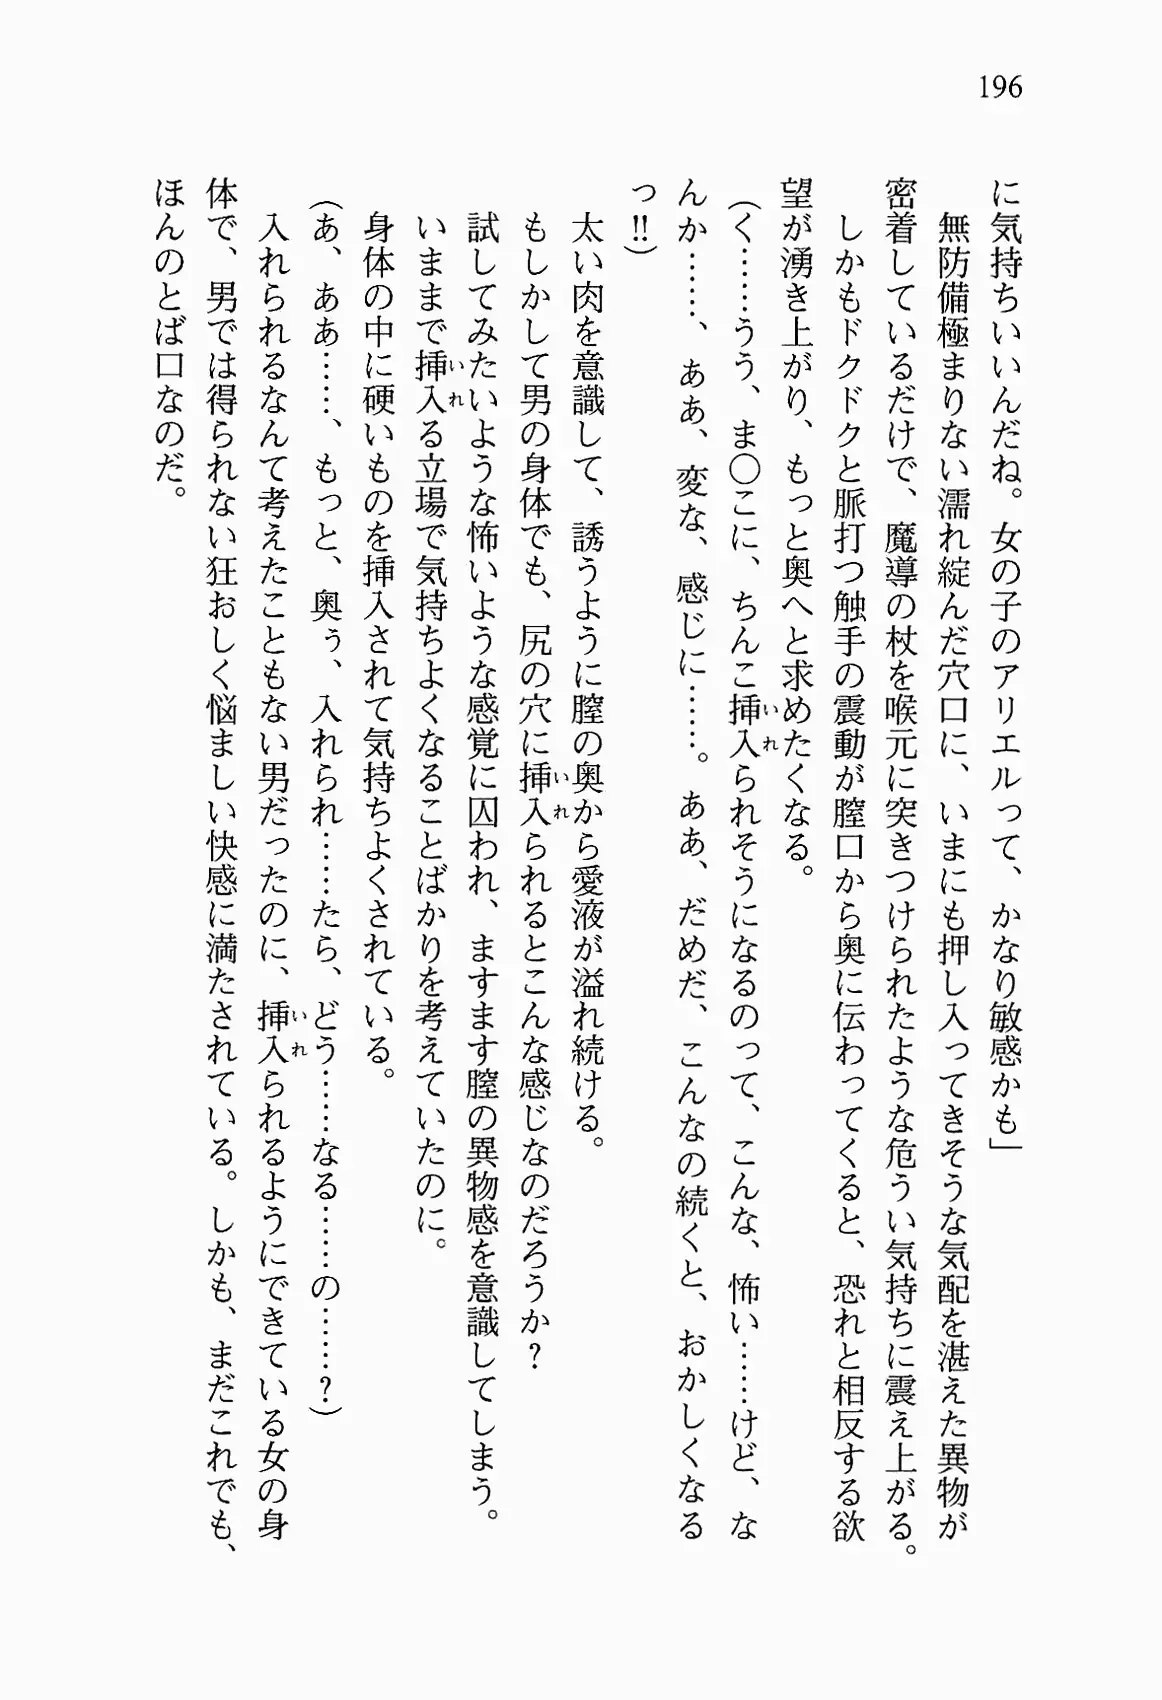 196
に気持ちいいんだね。女の子のアリエルって、かなり敏感かも」
無防備極まりない濡れ綻んだ穴口に、いまにも押し入ってきそうな気配を湛えた異物が
密着しているだけで、魔導の杖を喉元に突きつけられたような危うい気持ちに震え上がる。
しかもドクドクと脈打つ触手の震動が膣口から奥に伝わってくると、恐れと相反する欲
望が湧き上がり、もっと奥へと求めたくなる。
（く……うう、ま〇こに、ちんこ挿入られそうになるのって、こんな、怖い……けど、な
んか……、ああ、変な、感じに……。ああ、だめだ、こんなの続くと、おかしくなる
っ!!）
太い肉を意識して、誘うように膣の奥から愛液が溢れ続ける。
もしかして男の身体でも、尻の穴に挿入られるとこんな感じなのだろうか？
試してみたいような怖いような感覚に囚われ、ますます膣の異物感を意識してしまう。
いままで挿入る立場で気持ちよくなることばかりを考えていたのに。
身体の中に硬いものを挿入されて気持ちよくされている。
（あ、ああ……、もっと、奥ぅ、入れられ……たら、どう……なる……の……？）
入れられるなんて考えたこともない男だったのに、挿入られるようにできている女の身
体で、男では得られない狂おしく悩ましい快感に満たされている。しかも、まだこれでも、
ほんのとば口なのだ。